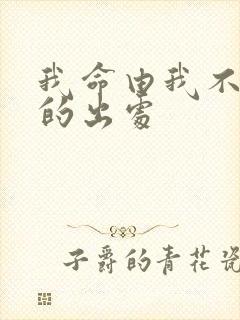 我命由我不
的出处
子爵的青花瓷